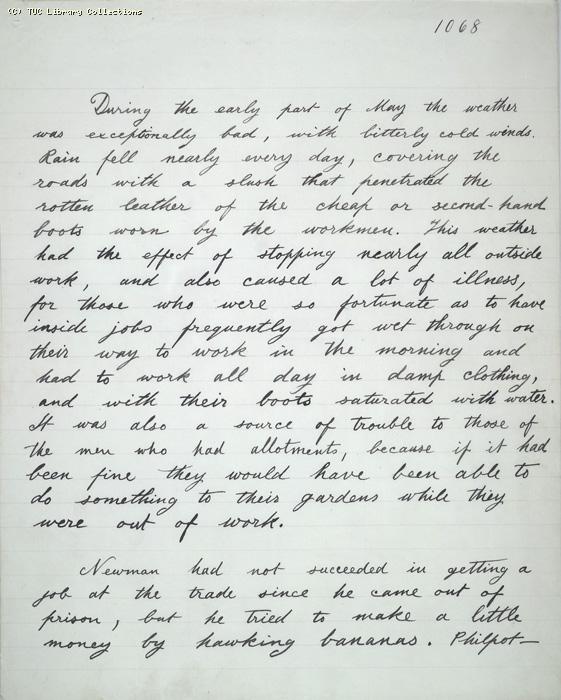 (C) TUC Library Collections
1068
During the early part of May the weather
was exceptionally bad, with bitterly cold winds.
Rain fell nearly every day, covering the
roads with a slush that penetrated the
rotten leather of the cheap or second-hand
boots worn by the workmen. This weather
had the effect of stopping nearly all outside
work, and also caused a lot of illness,
for those who were so fortunate as to have
inside jobs frequently got wet through on
their way to work in the morning and
had to work all day in damp clothing,
and with their boots saturated with water.
It was also a source of trouble to those of
the men who had allotments, because if it had
been fine they would have been able to
do something to their gardens while they
were out of work.
Newman had not succeeded in getting a
job at the trade since he came out of
prison, but he tried to make a little
money by hawking bananas. Philpot—